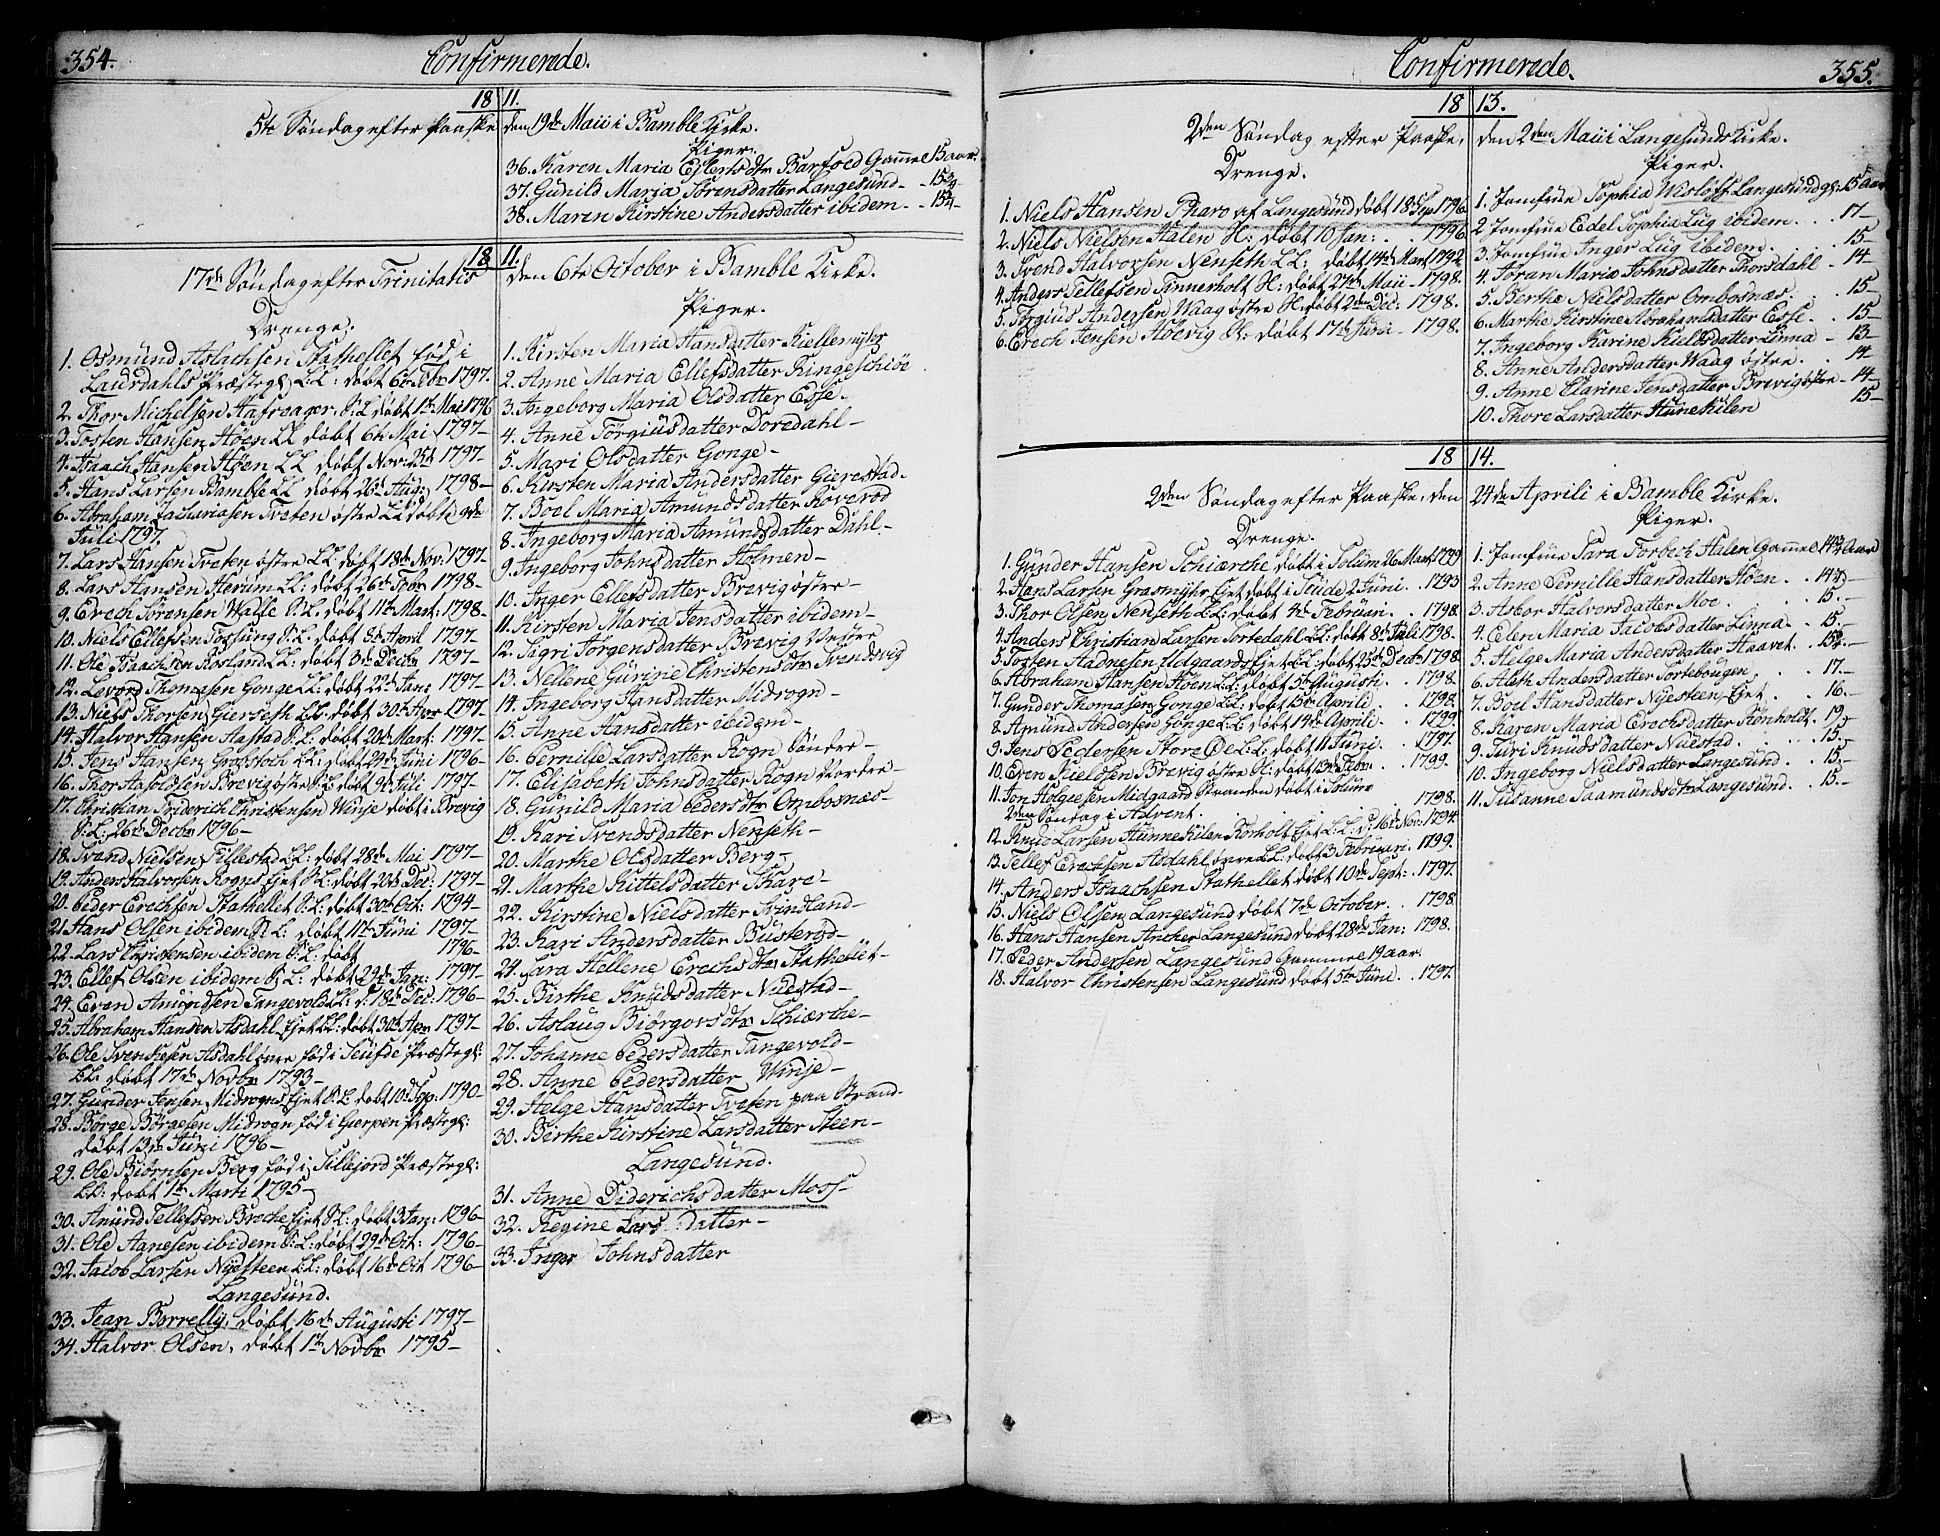 354. Confirmerede.
18 11.
5te Søndag efter Paaske den 19de Maii i Bamble Kirke.
Piger.
36. Karen Maria Ejlertsdtr Barfod Gamel 15 aar.
37. Gunild Maria Sørensdatter Langesund - 15¾
38. Maren Kirstine Andersdatter ibidem - 15¼
18 11.
17de Søndag efter Trinitatis den 6te October i Bamble Kirke.
Drenge.
1. Osmund Aslachsen Stathellet fød i
Laurdahls Præstegl. L.L: døbt 6te Febr 1797.
2. Thor Michelsen Aafreager. S.L døbt 1te Mai 1796
3. Tosten Hansen Høen LL døbt 6te Mai 1797-
4. Isaach Hansen Høen LL døbt Nov: 25d 1797.
5. Hans Larsen Bamble LL døbt 26de Aug: 1798-
6. Abraham Zachariasen Tveten østre LL døbt 9de
Juli 1797.
7. Lars Hansen Tveten østre LL døbt 18de Nov. 1797-
8. Lars Hansen Herum LL: døbt 26de 1798-
9. Erech Sørensen Valle S.L: døbt 11te Mart: 1798.
10. Niels Ellefsen Fossung S.L: døbt 8de April 1797-
11. Ole Isaachsen Rosland LL: døbt 3de Decbr 1797-
12. Levord Thomasen Gonge LL: døbt 22de Jane 1797-
13. Niels Thorsen Gierseth LL: døbt 30te Apr 1797-
14. Halvor Hansen Aastad S.L: døbt 20de Mart. 1797-
15. Jens Hansen Grobstoch LL: døbt 29de Juni 1796-
16. Thor Aasoldsen Brevig østre S:L døbt 9de Juli 1797-
17. Christian Friderich Christensen Winje døbt i Brevig
S:L: 26de Decbr 1796-
18. Svend Nielsen Fillestad LL: døbt 28de Mai 1797-
19. Anders Halvorsen Rogns Ejet S.L: døbt 20de Dec: 1797-
20. Peder Erechsen Stathellet S:L: døbt 30te Oct: 1794-
21 Hans Olsen ibidem S:L: døbt 11te Juni 1797-
22. Lars Christensen ibidem S:L: døbt 1796-
23. Ellef Olsen ibidem S:L: døbt 29de Jan: 1797-
24. Even Amundsen Tangevold LL: d: 18de Dec: 1796-
25. Abraham Hansen Asdahl Ejet LL: døbt 30te Apr 1797-
26. Ole Svenkesen Asdahl øvre fød i Seufde Præstegl:
LL: døbt 17de Novbr 1793-
27. Gunder Jensen Midrogns Ejet S.L døbt 10de Sep. 1790-
28. Børge Børgesen Midrogn fød i Gierpen Præstegl:
døbt 13de Juni 1796-
29. Ole Biørnsen Berg fød i Sillejord Præstegl:
LL: døbt 1te Marti 1795-
30. Amund Tellefsen Broche Ejet S:L: døbt 3 Jan: 1796-
31. Ole Aanesen ibidem S:L: døbt 29de Oct: 1796-
32. Jacob Larsen Nydsteen LL: døbt 16de Oct 1796-
Langesund.
33. Jean Borrelly, døbt 16de Augusti 1797-
34. Halvor Olsen, døbt 1te Novbr 1795-
Piger.
1. Kirsten Maria Hansdatter Kiellemyhr
2. Anne Maria Ellefsdatter Ringeschiöe
3. Ingeborg Maria Olsdatter Esse.
4. Anne Torgiusdatter Doredahl-
5. Mari Olsdatter Gonge-
6. Kirsten Maria Andersdatter Gierestad-
7. Boel Maria Amundsdatter Roverod
8. Ingeborg Maria Amundsdatter Dahl-
9. Ingeborg Johnsdatter Holmen-
10. Inger Ellefsdatter Brevig østre-
11. Kirsten Maria Jensdatter ibidem-
12. Sigri Jørgensdatter Brevig Vestre
13. Nellene Gurine Christensdtr Svendsvig
14. Ingeborg Hansdatter Midrogn-
15. Anne Hansdatter ibidem-
16. Pernille Larsdatter Rogn Søndre-
17. Elisabeth Johnsdatter Rogn Nordre-
18. Gunild Maria Pedersdtr Ombosnæs-
19. Kari Svendsdatter Nenseth-
20. Marthe Olsdatter Berg-
21. Marthe Kittelsdatter Skare-
22. Kirstine Nielsdatter Svindland-
23. Kari Andersdatter Busterød-
24. Sara Hellene Erechsdtr Stathellet-
25. Birthe Knudsdatter Nuestad-
26. Aslaug Biørgovsdtr Schiærthe-
27. Johanne Pedersdatter Tangevold-
28. Anne Pedersdatter Winje-
29. Helge Hansdatter Tveten paa Strand-
30. Birthe Kirstine Larsdatter Steen-
Langesund.
31. Anne Diderichsdatter Moss-
32. Regine Larsdatter-
33. Inger Johnsdatter
Confirmerede. 355.
18 13.
2den Søndag efter Paaske, den 2den Maii i Langesunds Kirke.
Drenge.
1. Niels Hansen Pharo af Langesund døbt 18 Sep 1796
2. Niels Nielsen Halen S: døbt 10 Jan: . . 1796
3. Svend Halvorsen Nenseth LL: døbt 14de Mart 1792
4. Anders Tellefsen Tinnerholt S: døbt 27de Maii - 1798.
5. Torgius Andersen Waag østre S: døbt 2den Dec: - 1798.
6. Erech Jensen Aabevig S: døbt 17de Juni - 1798.
Piger.
1. Jomfrue Sophia Wisløff Langesund gl: 15 Aar
2 Jomfrue Edel Sophia Lug ibidem . . . 17-
3. Jomfrue Inger Lug ibidem . . . 15-
4. Joran Maria Johnsdatter Thorsdahl - 14
5. Berthe Nielsdatter Ombosnæs . . 15-
6. Marthe Kirstine Abrahamsdatter Esse . 15-
7. Ingeborg Karine Kieldsdatter Linna - 13-
8. Anne Andersdatter Waag østre . . 14
9. Anne Clarine Jensdatter Brevig østre - 14-
10. Thore Larsdatter Hunekilen 15-
18 14.
2den Søndag efter Paaske, den 24de Aprili i Bamble Kirke.
Drenge.
1. Gunder Hansen Schiærche døbt i Solum 26 Mart 1799
2. Hans Larsen Grasmyhr Ejet døbt i Seude 2 Juni . 1793
3. Thor Olsen Nenseth LL: døbt 4de Februari . . 1798
4. Anders Christian Larsen Tortedahl LL: døbt 8de Juli 1798.
5. Tosten Hadnesen Eidgaards Ejet LL: døbt 25de Decbr 1798.
6. Abraham Hansen Høen LL: døbt 5te Augusti . . 1798.
7. Gunder Thomasen Gonge LL: døbt 15de Aprili . . 1798.
8. Amund Andersen Gonge LL døbt 14de Aprili . . 1799.
9. Jens Pedersen Store Øe LL: døbt 11 Juni . . 1797.
10. Even Kieldsen Brevig østre S: døbt 13de Febr . . 1799.
11. Jon Helgesen Midgaard Stranden døbt i Solum
1798.
2den Søndag i Advent.
12. Knud Larsen Hunnekilen Rorholt Ejet LL: d: 16de Nov: 1794.
13. Tellef Erechsen Asdahl øvre LL: døbt 3 Februari . 1799.
14. Anders Isaachsen Stathellet døbt 10de Sept: . 1797.
15. Niels Olsen Langesund døbt 7de October . . 1798
16. Hans Hansen Ancher Langesund døbt 28de Jan: 1798.
17. Peder Andersen Langesund Gammel 19 aar.
18. Halvor Christensen Langesund døbt 5te Juni . . 1797.
Piger.
1. Jomfrue Sara Forbech Halen Gammel 14¾ Aar
2. Anne Pernille Hansdatter Høen . . 14½-
3. Asbor Halvorsdatter Moe . . . 15.-
4. Elen Maria Jacobsdatter Linna . . 15.-
5. Helge Maria Andersdatter Haavet . 15½-
6. Aleth Andersdatter Tortebougen . 17.-
7. Boel Hansdatter Nyesteen Ejet . . 16.-
8. Karen Maria Erechsdatter Rønholdt . 19.-
9. Turi Knudsdatter Nuestad . . . . 15.-
10. Ingeborg Nielsdatter Langesund . . 15.-
11. Susanne Saamundsdtr Langesund . . 15.-